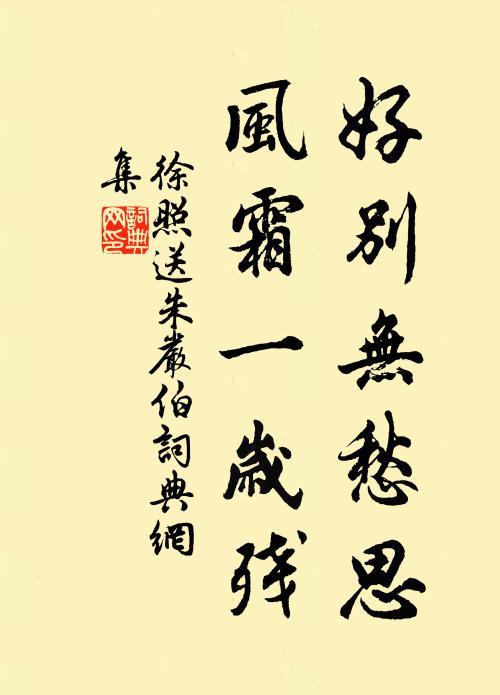 好別無愁思
風霜一歲殘
徐照送朱嚴伯詞典網
集
詞典網印